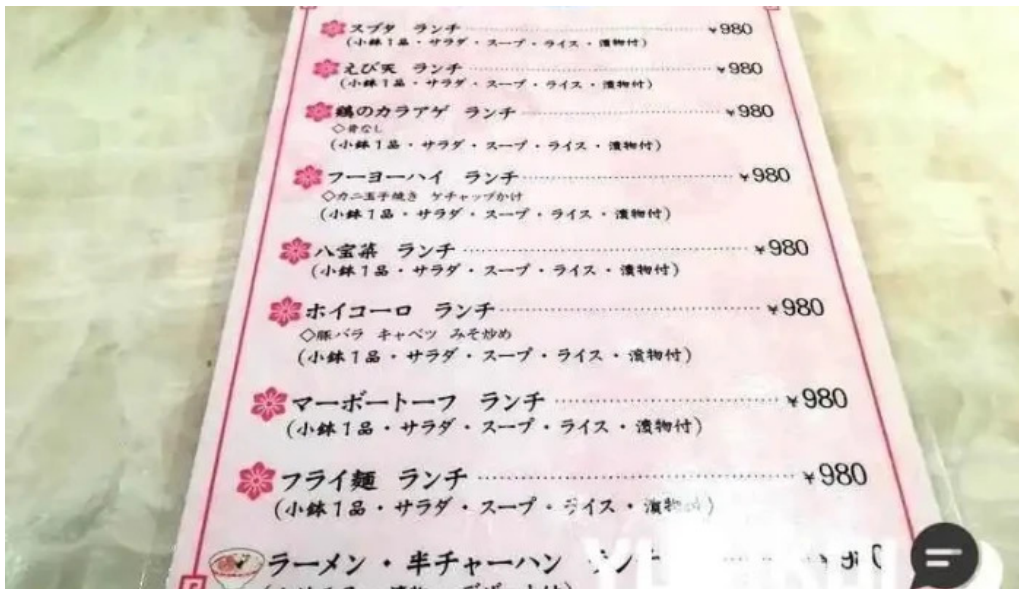 スブタ ランチ ¥980
(小鉢1品・サラダ・スープ・ライス・漬物付)
えび天 ランチ ¥980
(小鉢1品・サラダ・スープ・ライス・漬物付)
鶏のカラアゲ ランチ ¥980
◇骨なし
(小鉢1品・サラダ・スープ・ライス・漬物付)
フーヨーハイ ランチ ¥980
◇カニ玉子焼き ケチャップかけ
(小鉢1品・サラダ・スープ・ライス・漬物付)
八宝菜 ランチ ¥980
(小鉢1品・サラダ・スープ・ライス・漬物付)
ホイコーロ ランチ ¥980
◇豚バラ キャベツ みそ炒め
(小鉢1品・サラダ・スープ・ライス・漬物付)
マーボートーフ ランチ ¥980
(小鉢1品・サラダ・スープ・ライス・漬物付)
フライ麺 ランチ ¥980
(小鉢1品・サラダ・スープ・ライス・漬物付)
ラーメン・半チャーハン ランチ